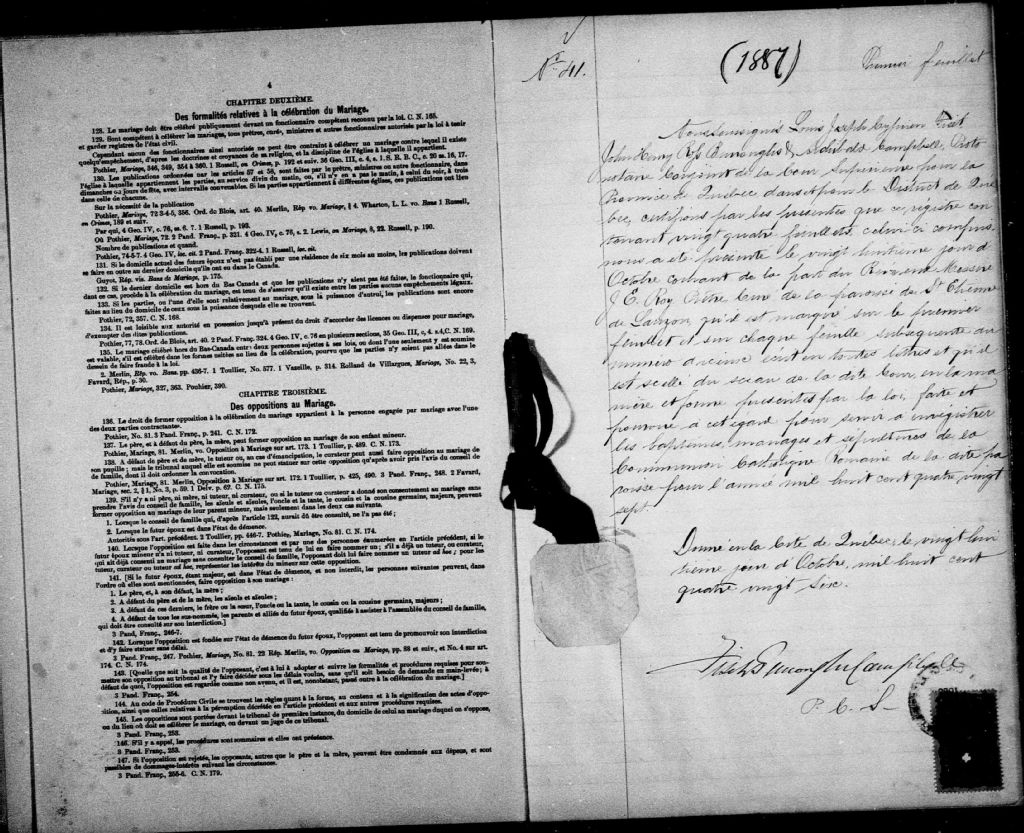 4
CHAPITRE DEUXIÈME.
Des formalités relatives à la célébration du Mariage.
128. Le mariage doit être célébré publiquement devant un fonctionnaire compétent reconnu par la loi. C. N. 165.
129. Sont compétents à célébrer les mariages, tous prêtres, curés, ministres et autres fonctionnaires autorisés par la loi à tenir
et garder registres de l'état civil.
Cependant aucun des fonctionnaires ainsi autorisés ne peut être contraint à célébrer un mariage contre lequel il existe
quelqu'empêchement, d'après les doctrines et croyances de sa religion, et la discipline de l'église à laquelle il appartient.
Pothier, Mariage, 346, 349, 354 à 360. 1 Russell, on Crimes, p. 192 et suiv. 36 Geo. III, c. 4, s. 1. S. R. B. C., c. 20 ss. 16, 17.
130. Les publications ordonnées par les articles 57 et 58, sont faites par le prêtre, ministre ou autre fonctionnaire, dans
l'église à laquelle appartiennent les parties, au service divin du matin, ou, s'il n'y en a pas le matin, à celui du soir, à trois
dimanches ou jours de fête, avec intervalle convenables. Si les parties appartiennent à différentes églises, ces publications ont lieu
dans celle de chacune.
Sur la nécessité de la publication
Pothier, Mariage, 72 3-4-5, 356. Ord. de Blois, art. 40. Merlin, Rép vo. Mariage, § 4. Wharton, L. L. vo. Bans 1 Russell,
on Crimes, 189 et suiv.
Par qui, 4 Geo. IV, c. 76, ss. 6. 7. 1 Russell, p. 193.
Où Pothier, Mariage, 72. 2 Pand. Franç., p. 321. 4 Geo. IV, c. 76, s. 2. Lewis, on Mariage, 8, 22. Russell, p. 190.
Nombre de publications et quand.
Pothier, 74-5-7. 4 Geo. IV, loc. cit. 2 Pand. Franç., 322-4. 1 Russell, loc. cit.
131. Si le domicile actuel des futurs époux n'est pas établi par une résidence de six mois au moins, les publications doivent
se faire en outre au dernier domicile qu'ils ont eu dans le Canada.
Guyot, Rép. vis. Bans de Mariage, p. 175.
132. Si le dernier domicile est hors du Bas-Canada et que les publications n'y aient pas été faites, le fonctionnaire qui,
dans ce cas, procède à la célébration du mariage, est tenu de s'assurer qu'il n'existe entre les parties aucuns empêchements légaux.
133. Si les parties, ou l'une d'elles sont relativement au mariage, sous la puissance d'autrui, les publications sont encore
faites au lieu du domicile de ceux sous la puissance desquels elles se trouvent.
Pothier, 72, 357. C. N. 168.
134. Il est loisible aux autorités en possession jusqu'à présent du droit d'accorder des licences ou dispenses pour mariage,
d'exempter des dites publications.
Pothier, 77, 78. Ord. de Blois, art. 40. 2 Pand. Franç. 324. 4 Geo. IV, c. 76 en plusieurs sections, 35 Geo. III, c. 4. s.4, C. N. 169.
135. Le mariage célébré hors du Bas-Canada entre deux personnes sujettes à ses lois, ou dont l'une seulement y est soumise
est valable, s'il est célébré dans les formes usitées au lieu de la célébration, pourvu que les parties n'y soient pas allées dans le
dessein de faire fraude à la loi.
2. Merlin, Rép. vo. Bans. pp. 436-7. 1 Toullier, No. 577. 1 Vazeille, p. 314. Rolland de Villargues, Mariage, No. 22, 3,
Favard, Rép., p. 30.
Pothier, Mariage, 327, 363. Pothier, 390.
CHAPITRE TROISIÈME.
Des oppositions au Mariage.
136. Le droit de former opposition à la célébration du mariage appartient à la personne engagée par mariage avec l'une
des deux parties contractantes.
Pothier, No. 81. 3 Pand. Franç., p. 241. C. N. 172.
137. Le père, et à défaut du père, la mère, peut former opposition au mariage de son enfant mineur.
Pothier, Mariage, 81. Merlin, vo. Opposition à Mariage sur art. 173. 1 Toullier, p. 489. C. N. 173.
138. A défaut de père et de mère, le tuteur ou, au cas d'émancipation, le curateur peut aussi faire opposition au mariage de
son pupille; mais le tribunal auquel elle est soumise ne peut statuer sur cette opposition qu'après avoir pris l'avis du conseil de
famille, dont il doit ordonner la convocation.
Pothier, Mariage, 81. Merlin, Opposition à Mariage sur art. 172. 1 Toullier, p. 425, 490. 3 Pand. Franç., 248. 2 Favard,
Mariage, sec. 2, § 1, No. 3, p. 59. 1 Delv. p. 62. C. N. 175.
139. S'il n'y a ni père, ni mère, ni tuteur, ni curateur, ou si le tuteur ou curateur a donné son consentement au mariage sans
prendre l'avis du conseil de famille, les aïeuls et aïeules, l'oncle et la tante, le cousin et la cousine germains, majeurs, peuvent
former opposition au mariage de leur parent mineur, mais seulement dans les deux cas suivants.
1. Lorsque le conseil de famille qui, d'après l'article 122, aurait dû être consulté, ne l'a pas été;
2. Lorsque le futur époux est dans l'état de démence.
Autorités sous l'art. précédent. 2 Toullier, pp. 446-7. Pothier, Mariage, No. 81. C. N. 174.
140. Lorsque l'opposition est faite dans les circonstances et par une des personnes énumérées en l'article précédent, si le
futur époux mineur n'a ni tuteur, ni curateur, l'opposant est tenu de lui en faire nommer un; s'il a déjà un tuteur, ou curateur,
qui ait déjà consenti au mariage sans consulter le conseil de famille, l'opposant doit lui faire nommer un tuteur ad hoc; pour les
tuteur, curateur ou tuteur ad hoc, représenter les intérêts du mineur sur cette opposition.
141. [Si le futur époux, étant majeur, est dans l'état de démence, et non interdit, les personnes suivantes peuvent, dans
l'ordre où elles sont mentionnées, faire opposition à son mariage:
1. Le père, et, à son défaut, la mère;
2. A défaut du père et de la mère, les aïeuls et aïeules;
3. A défaut de ces derniers, le frère ou la sœur, l'oncle ou la tante, le cousin ou la cousine germains, majeurs;
4. A défaut de tous les sus-nommés, les parents et alliés du futur époux, qualifiés à assister à l'assemblée du conseil de famille,
qui doit être consulté sur son interdiction.]
3 Pand. Franç., 246-7.
142. Lorsque l'opposition est fondée sur l'état de démence du futur époux, l'opposant est tenu de promouvoir son interdiction
et d'y faire statuer sans délai.
3 Pand. Franç., 247. Pothier, Mariage, No. 81. 22 Rép. Merlin, vo. Opposition au Mariage, pp. 88 et suiv., et No. 4 sur art.
174. C. N. 174.
143. [Quelle que soit la qualité de l'opposant, c'est à lui à adopter et suivre les formalités et procédures requises pour sou-
mettre son opposition au tribunal et l'y faire décider sous les délais voulus, sans qu'il soit besoin de demande en main-levée; à
défaut de quoi, l'opposition est regardée comme non avenu, et il est, nonobstant, passé outre à la célébration du mariage.]
3 Pand. Franç., 254.
144. Au code de Procédure Civile se trouvent les règles quant à la forme, au contenu et à la signification des actes d'oppo-
sition, ainsi que celles relatives à la péremption décrétée en l'article précédent et aux autres procédures requises.
145. Les oppositions sont portées devant le tribunal de première instance, du domicile de celui au mariage duquel on s'oppose,
ou du lieu où doit se célébrer le mariage, ou devant un juge de ce tribunal.
3 Pand. Franç., 253.
146. S'il y a appel, les procédures sont sommaires et elles ont préséance.
3 Pand. Franç., 253.
147. Si l'opposition est rejetée, les opposants, autres que le père et la mère, peuvent être condamnés aux dépens, et sont
passibles de dommages-intérêts suivant les circonstances.
3 Pand. Franç., 255-6. C. N. 179.
No. 41.
(1887)
Premier feuillet
Nous soussignés Louis Joseph Cyprien Fiset
John Henry Ross Burroughs & Archibald Campbell, Proto
notaire Conjoint de la Cour Supérieure pour la
Province de Québec dans et pour le District de Qué
bec, certifions par les présentes que ce registre con
tenant vingt quatre feuillets, celui-ci compris
nous a été présenté le vingt huitième jour d
Octobre courant de la part du Révérend Messire
J. E. Roy Ptre Curé de la paroisse de St Etienne
de Lauzon, qu'il est marqué sur le premier
feuillet et sur chaque feuillet subséquent du
numéro d'iceux écrit en toutes lettres et qu'il
est scellé du sceau de la dite Cour, en la ma
nière et forme prescrites par la loi, faite et
pourvue à cet égard pour servir à enregistrer
les baptêmes, mariages et sépultures de la
Communion Catholique Romaine de la dite pa
roisse pour l'année mil huit cent quatre vingt
sept
Donné en la Cité de Québec, le vingt hui
tième jour d'Octobre, mil huit cent
quatre vingt six.
Fiset Burroughs Campbell
P. C. S.